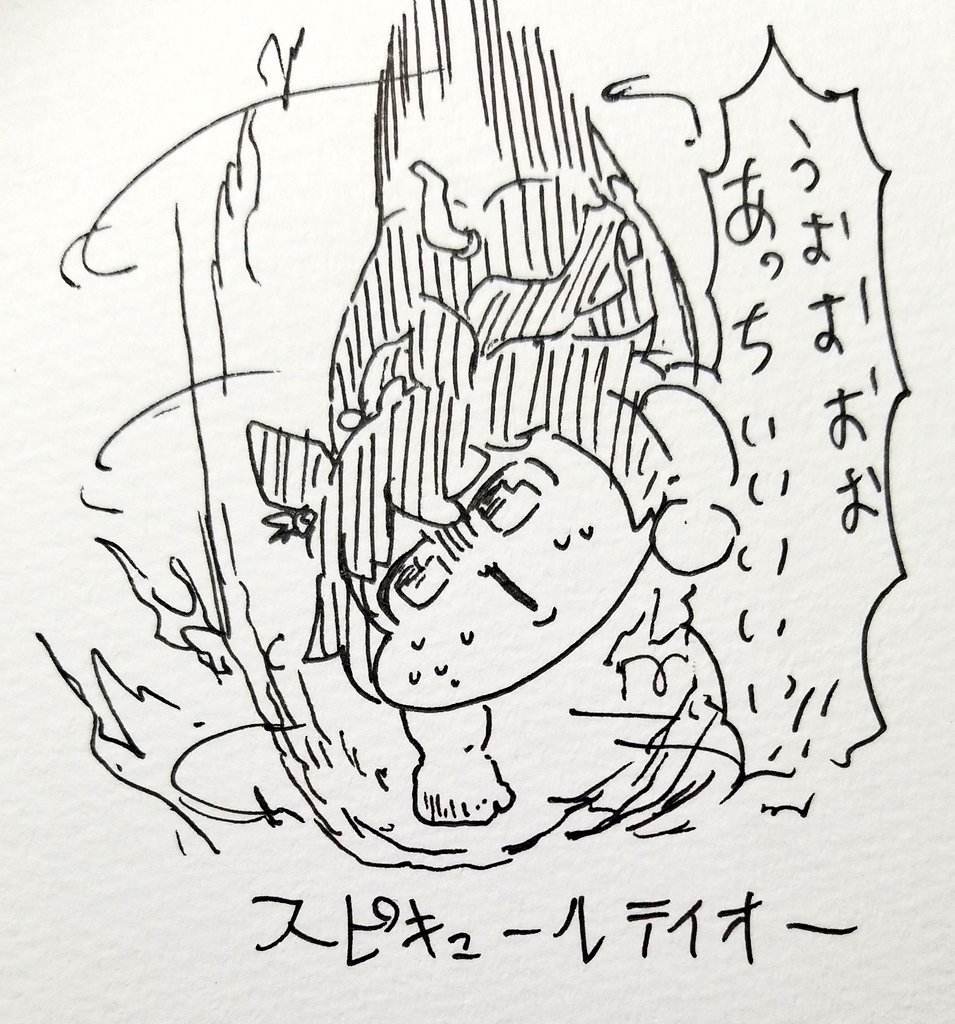 うおおおお
あっちいいいいい!!
スピキュールテイオー